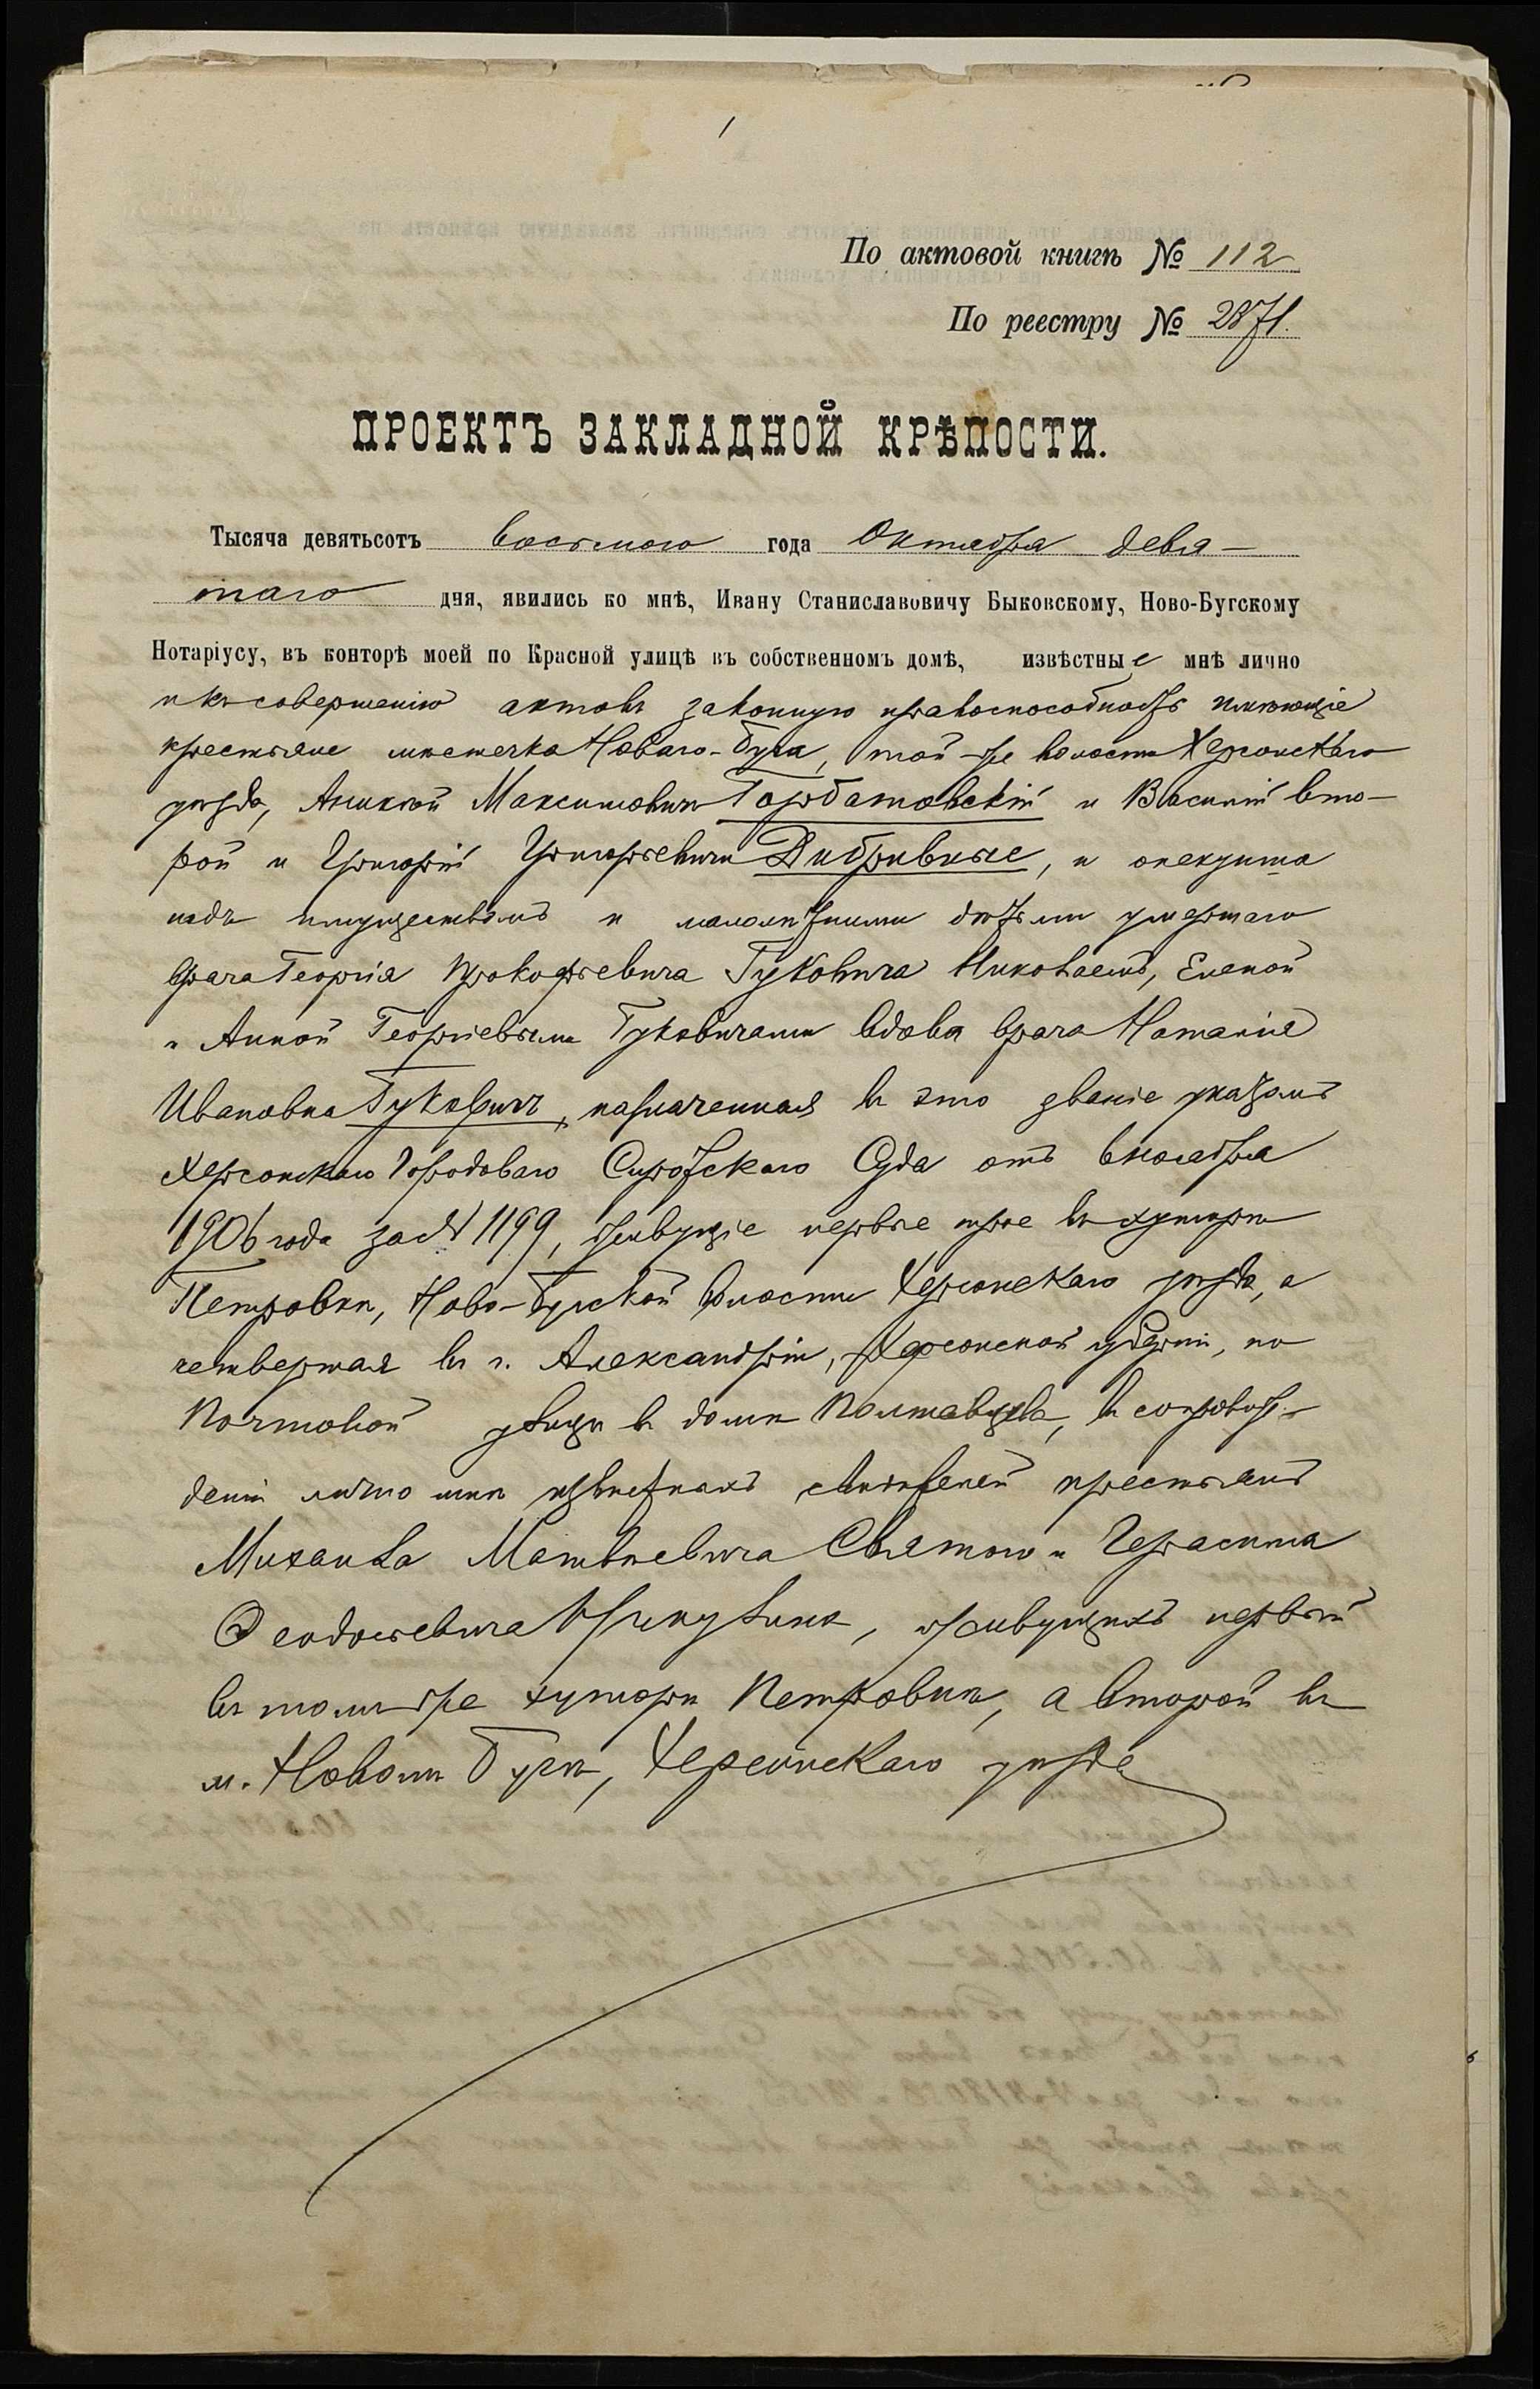 По актовой книгѣ № 112
По реестру № 2871.
ПРОЕКТЪ ЗАКЛАДНОЙ КРѢПОСТИ.
Тысяча девятьсотъ восьмого года Октября девя-
таго дня, явились ко мнѣ, Ивану Станиславовичу Быковскому, Ново-Бугскому
Нотаріусу, въ конторѣ моей по Красной улицѣ въ собственномъ домѣ, извѣстные мнѣ лично
и къ совершенію актовъ законную правоспособность имѣющіе
крестьяне мѣстечка Новаго-Буга, той-же волости Херсонскаго
уѣзда, Аникій Максимовичъ Горбатовскій и Василій вто-
рой и Григорій Григорьевичи Дибривные, и опекунша
надъ имуществомъ и малолѣтними дѣтьми умершаго
врача Георгія Прокофьевича Гуковича Николаемъ, Еленой
и Анной Георгіевыми Гуковичами вдова врача Наталія
Ивановна Гуковичъ, назначенная въ это званіе указомъ
Херсонскаго Городоваго Сиротскаго Суда отъ 6 ноября
1906 года за № 1199, живущіе первые трое въ хуторѣ
Петровкѣ, Ново-Бугской волости Херсонскаго уѣзда, а
четвертая въ г. Александріи, Херсонской губерніи, по
Почтовой улицѣ въ домѣ Полтавцева, въ сопровож-
деніи лично мнѣ извѣстныхъ свидѣтелей крестьянъ
Михаила Матвѣевича Святого и Герасима
Ѳеодосьевича живущихъ первый
въ томъ-же хуторѣ Петровкѣ, а второй въ
м. Новомъ Бугѣ, Херсонскаго уѣзда